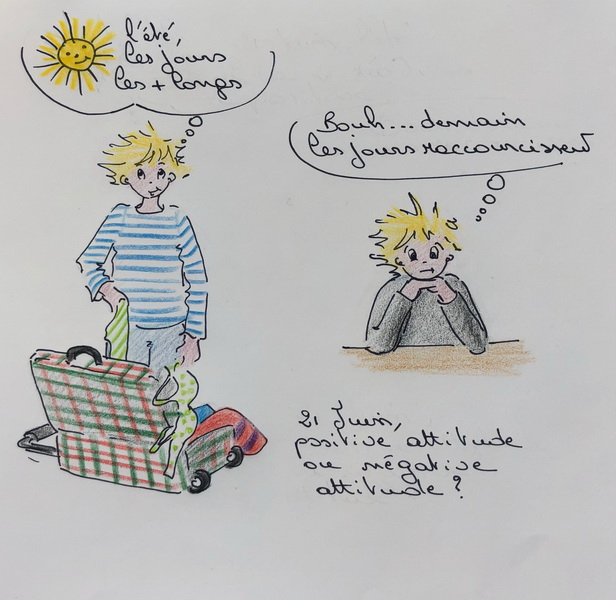 l'été,
les jours
les + longs
Bouh... demain
les jours raccourcissent
21 Juin,
positive attitude
ou négative
attitude ?